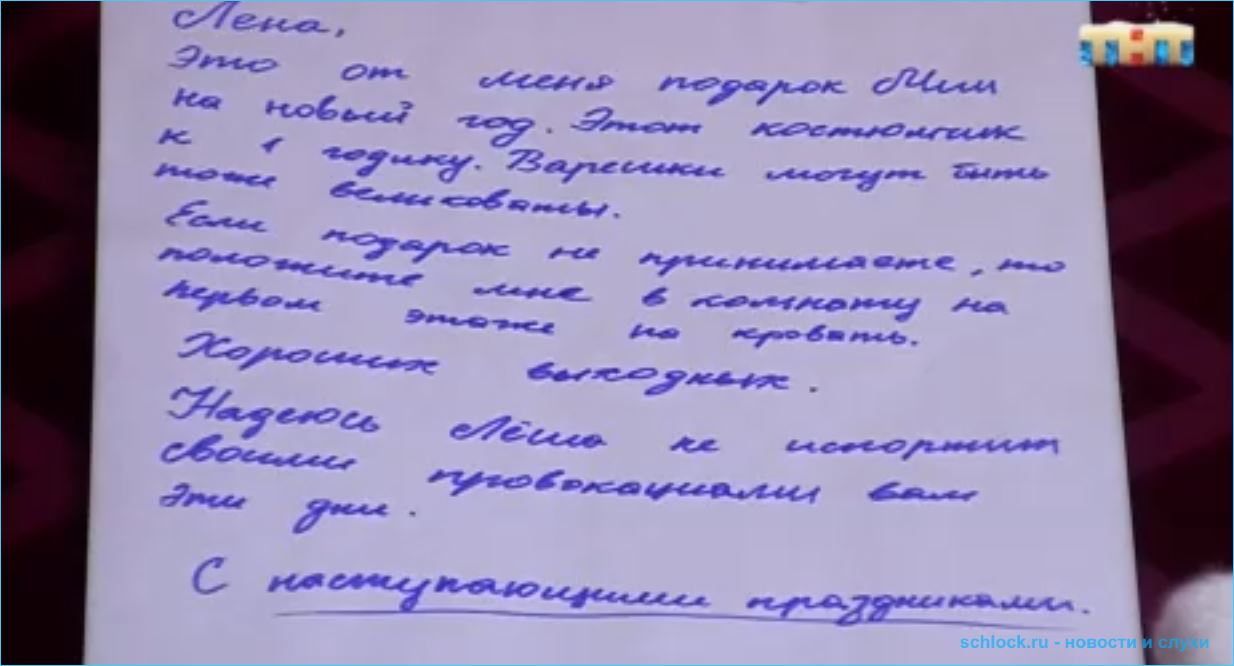 Лена,
ТНТ
Это от меня подарок Мии
на новый год. Этот костюмчик
к 1 годику. Варешки могут быть
тоже великоваты.
Если подарок не принимаете, то
положите мне в комнату на
первом этаже на кровать.
Хороших выходных.
Надеюсь Лёша не испортит
своими провокациями вам
эти дни.
С наступающими праздниками.
schlock.ru - новости и слухи